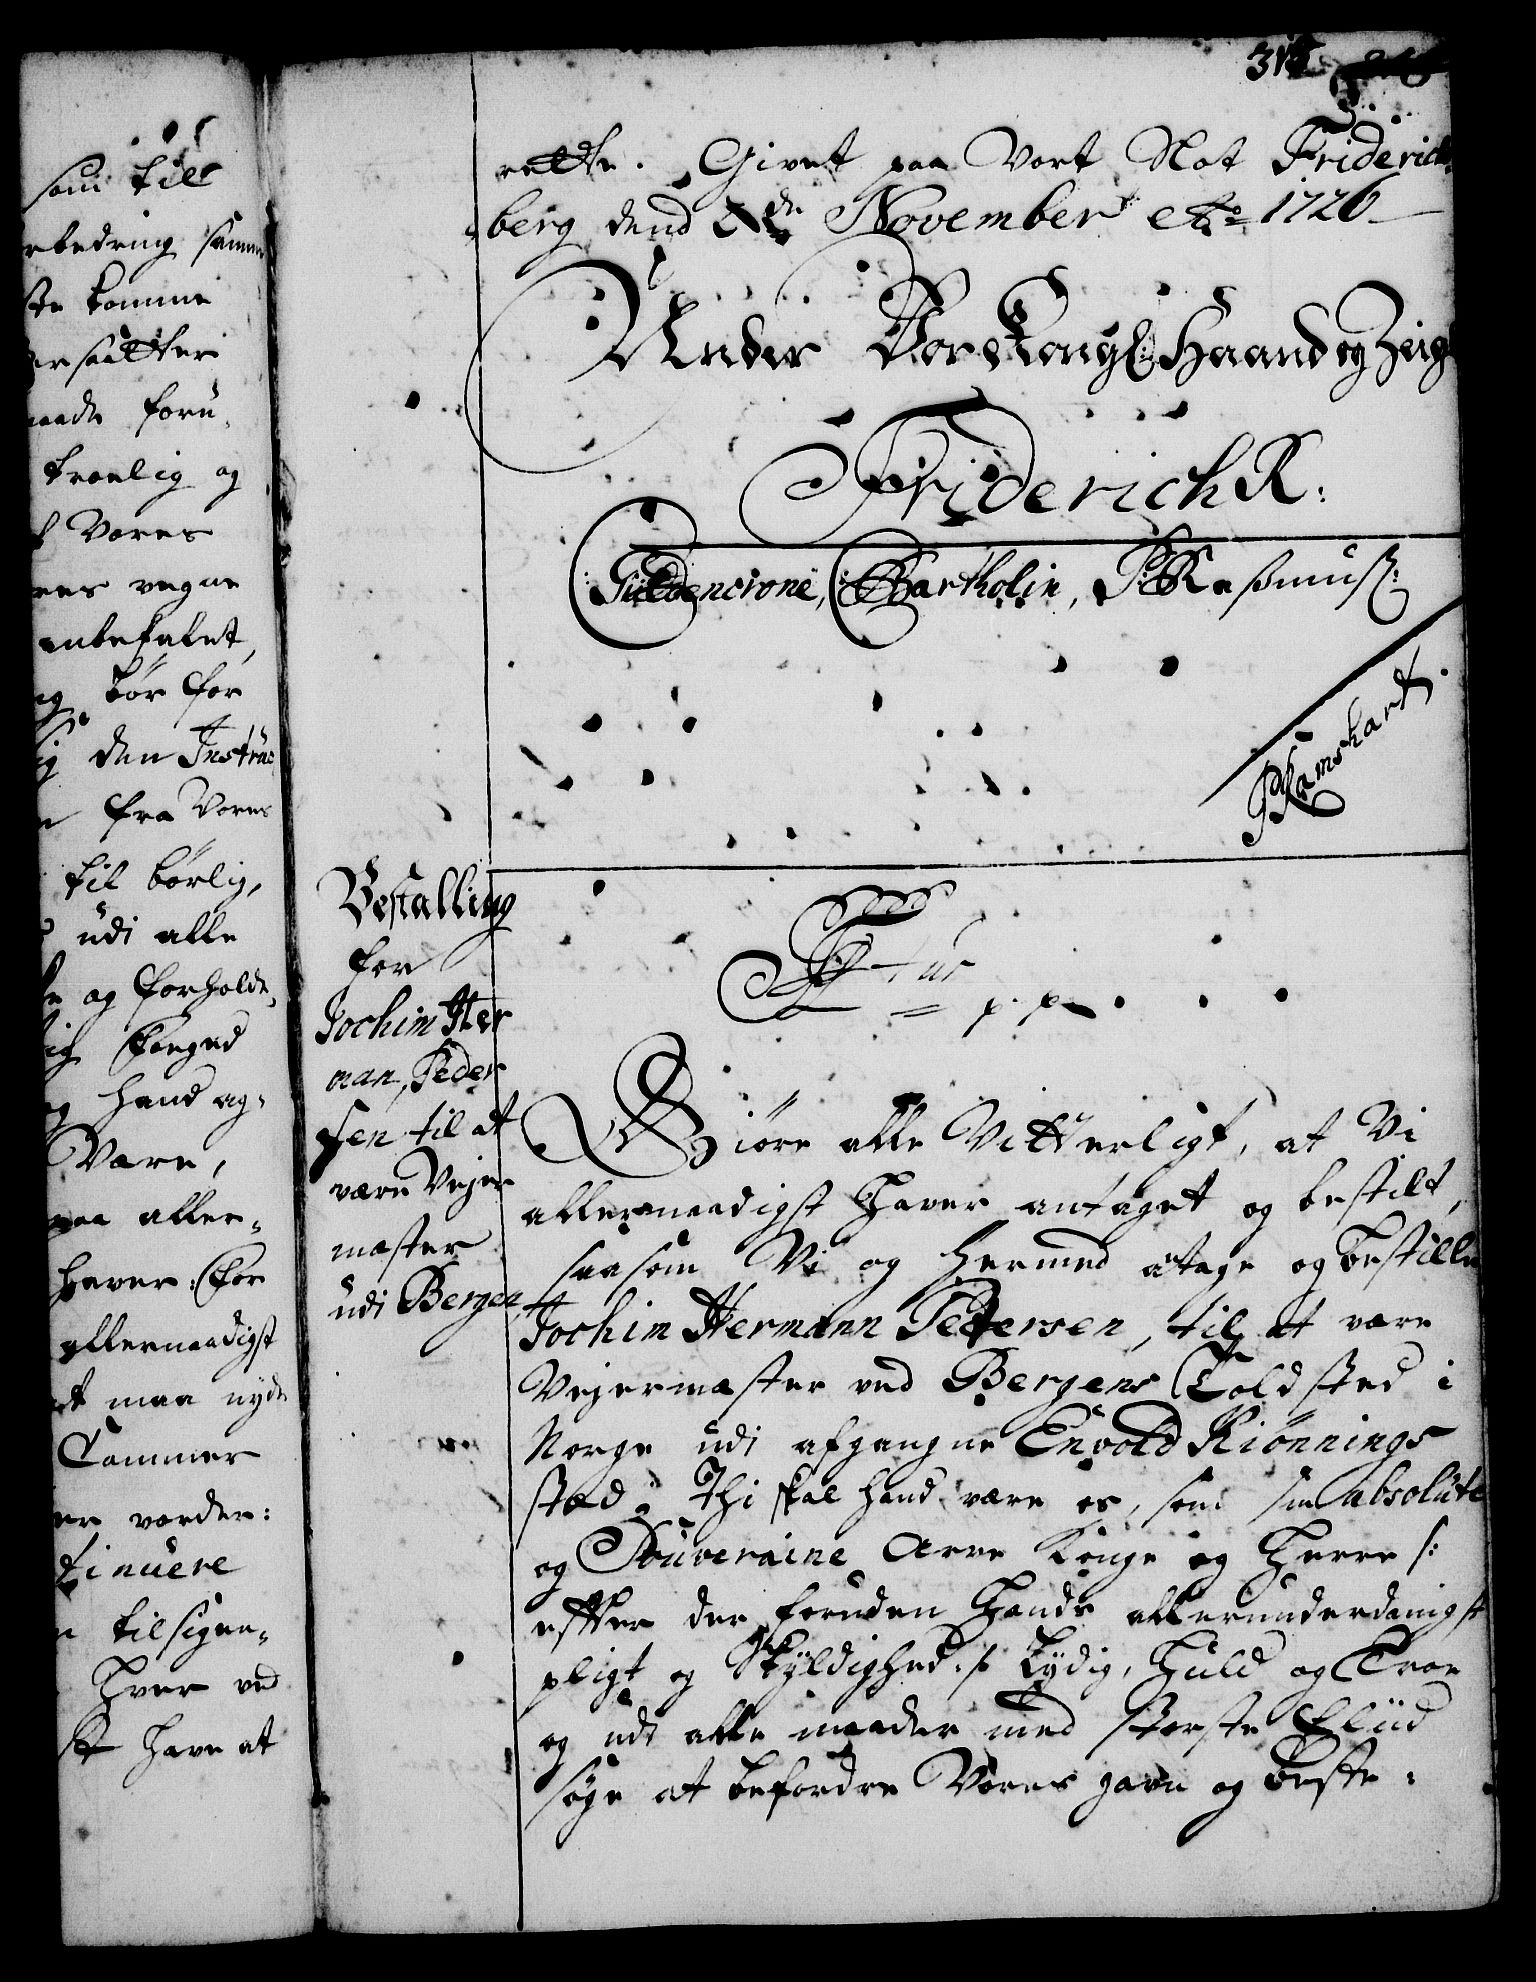 som till
rbedring samme
ste komme
ersætter
maade foru,
troelig og
f Vores
res vegne
anbefalet,
og bør for
ig den Instruc
fra Vores
til børlig,
udi alle
og forholde,
ig Eengod
og hand ag,
Være,
paa aller,
haver: for
allernaadigst
at maa nyde
Cammer
er vorder:
tinuere
tilsigne,
hver ved
have at
315
rette. Givet paa Vort Slot Friderichs
berg dend de November Ao 1726
Under Vor Kongl: Haand og Zeigl
Friderich R:
Güldencrone, CBartholin, P: Rasmuss:
PRamshart.
Bestalling
for
Jochim Her
man, Peder
sen til at
være Vejer
mæster
udi Bergen,
Tit us
p. p.
Giöre alle Vitterligt, at Vi
allernaadigst haver antaget og bestilt,
saasom Vi og hermed antage og bestille
Jochim Hermann Petersen, til at være
Vejermæster ved Bergens Toldsted i
Norge udi afgangne Envold Kiönnings
sted; Thi skal hand være os, som sin absolute
og Souveraine Arve Konge og Herre /:
effter den foruden hands allerunderdanigst
pligt og Skyldighed :/ Lydig, Huld og Troe
og udi alle maader med störste Fliid
söge at befordre Vores gavn og beste: